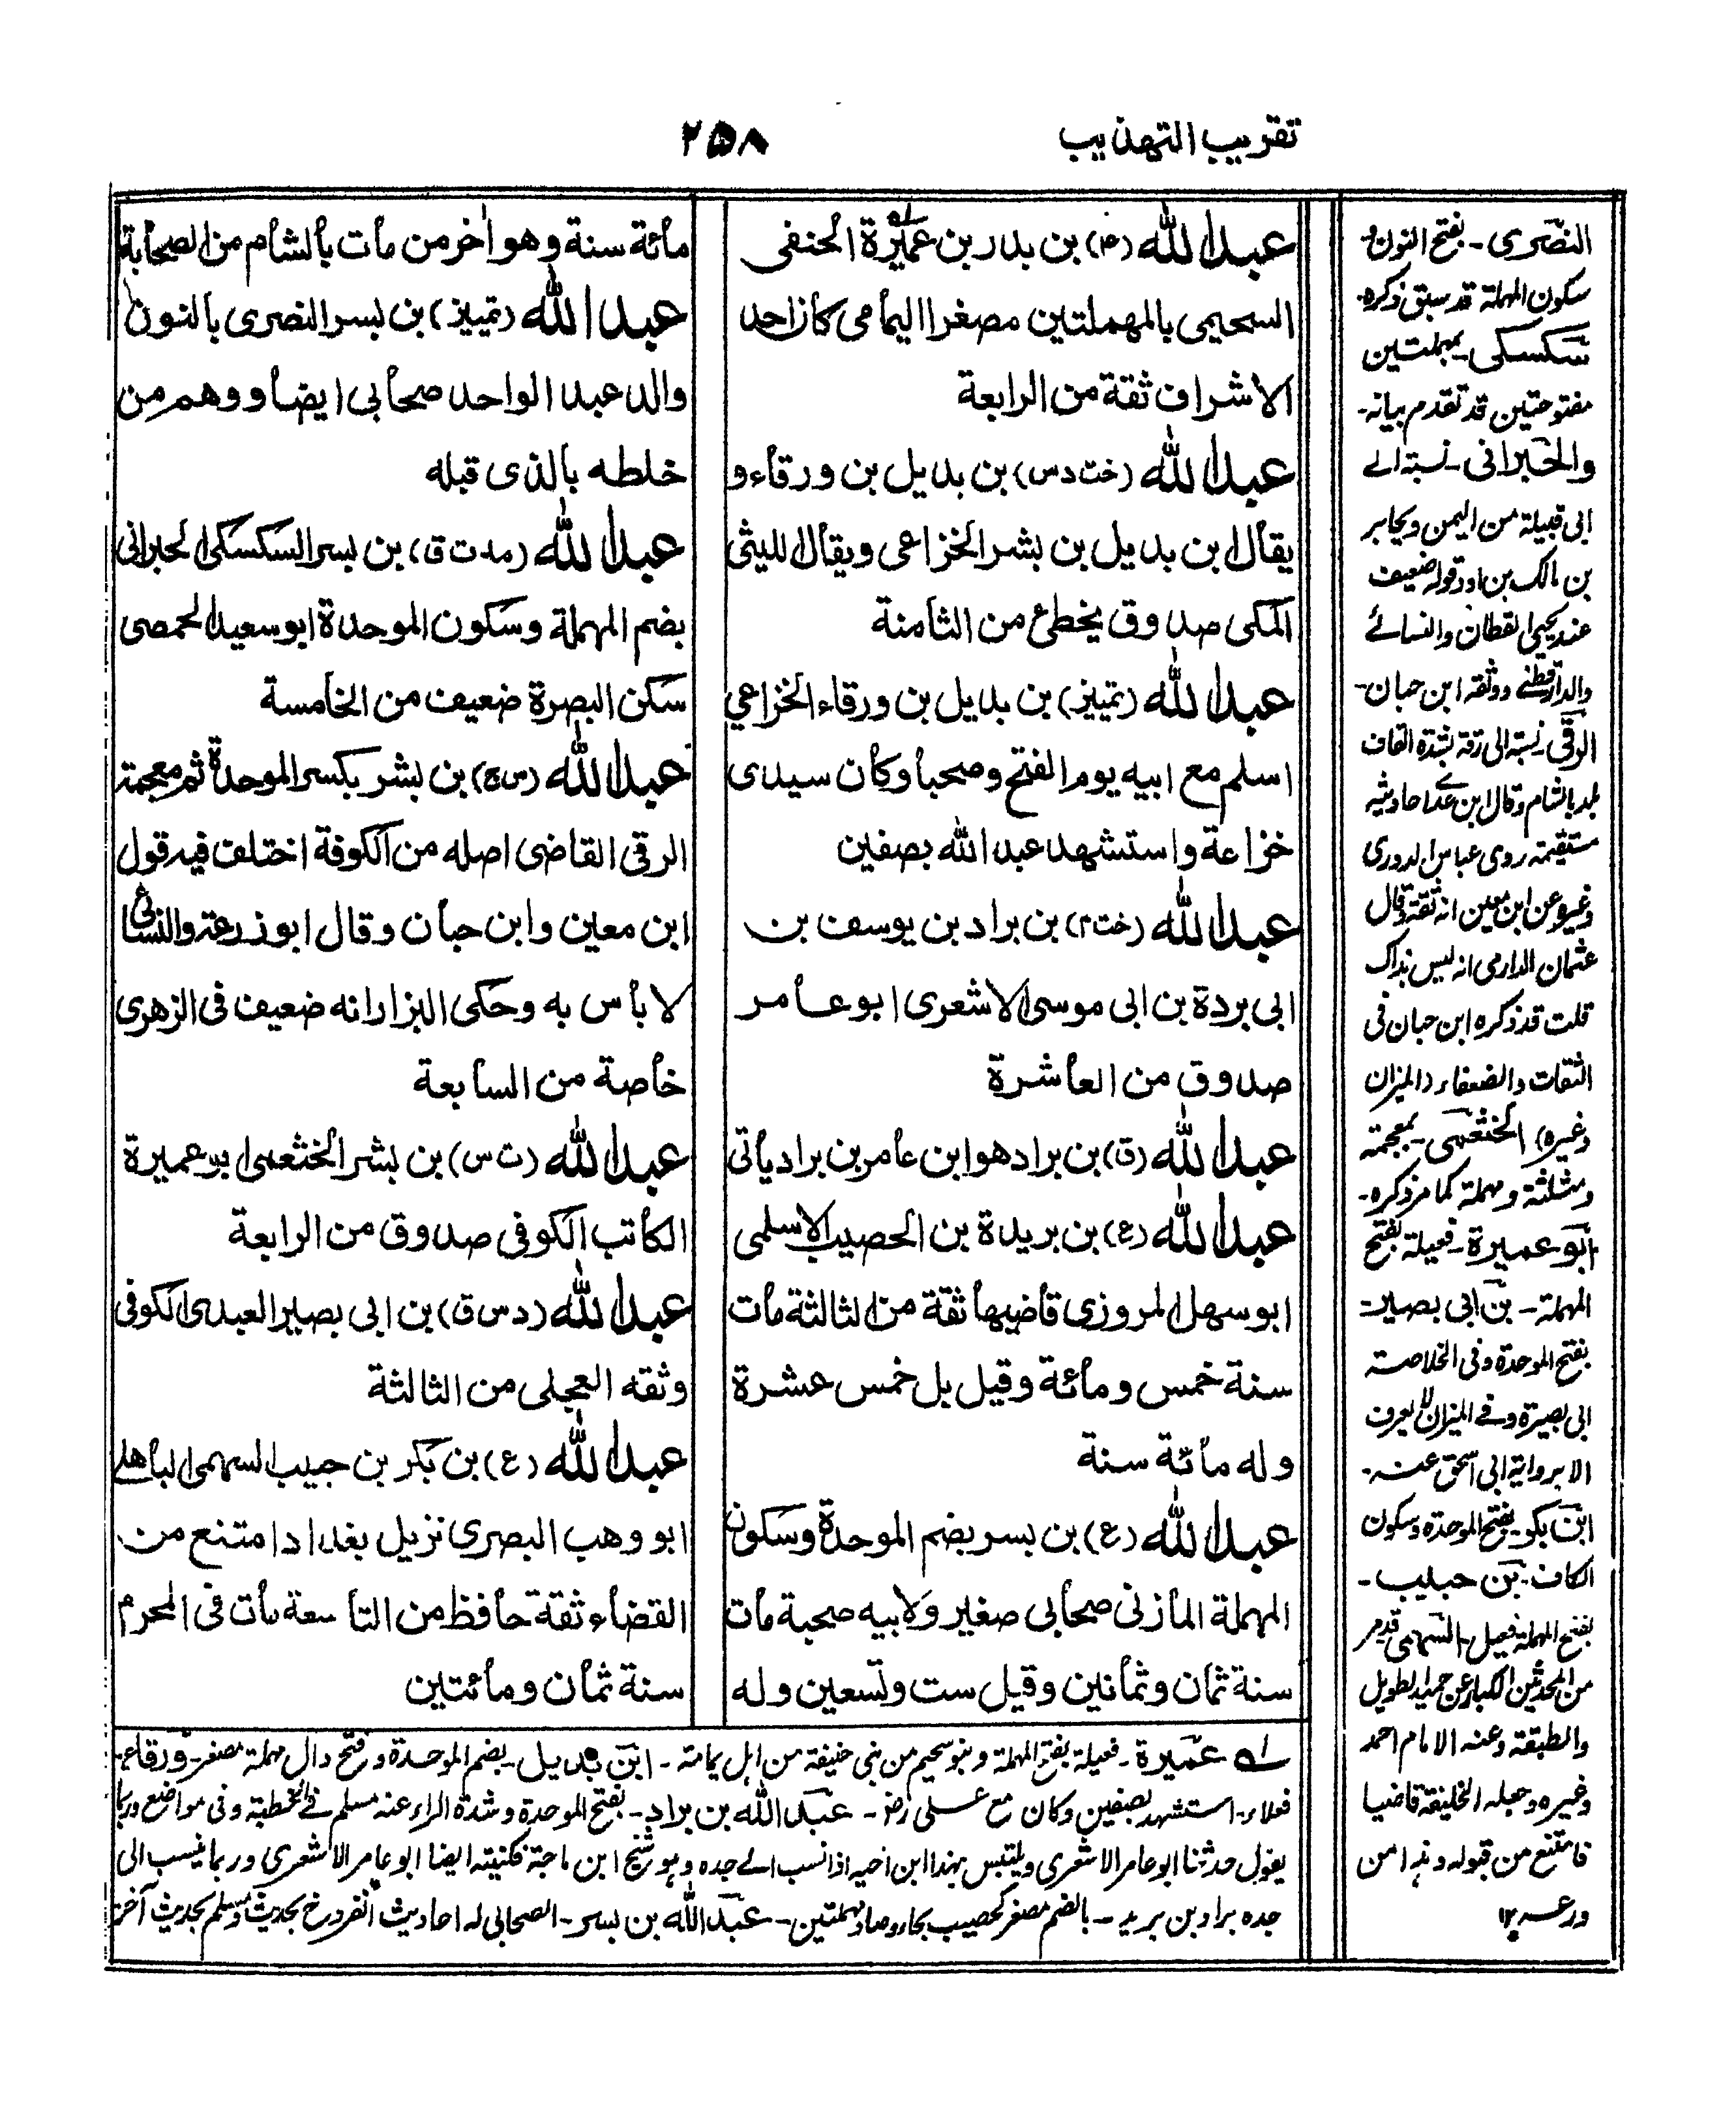 تقريب التهذيب
٢٥٨
عبد الله (٤) بن بدر بن عميرة الحنفى
السحيمى بالمهملتين مصغرا اليمامى كان احد
الاشراف ثقة من الرابعة
عبد الله (خت د س) بن بديل بن ورقاء و
يقال ابن بديل بن بشر الخزاعى ويقال الليثى
المكى صدوق يخطئ من الثامنة
عبد الله (تمييز) بن بديل بن ورقاء الخزاعي
اسلم مع ابيه يوم الفتح وصحبا وكان سيدى
خزاعة واستشهد عبد الله بصفين
عبد الله (خت م) بن براد بن يوسف بن
ابى بردة بن ابى موسى الاشعرى ابو عامر
صدوق من العاشرة
عبد الله (ق) بن براد هو ابن عامر بن براد يأتى
عبد الله (ع) بن بريدة بن الحصيب الاسلمى
ابو سهل المروزى قاضيها ثقة من الثالثة مات
سنة خمس ومائة وقيل بل خمس عشرة
وله مائة سنة
عبد الله (ع) بن بسر بضم الموحدة وسكون
المهملة المازنى صحابى صغير ولابيه صحبة مات
سنة ثمان وثمانين وقيل ست وتسعين وله
مائة سنة وهو اٰخر من مات بالشام من الصحابة
عبد الله (تمييز) بن بسر النصرى بالنون
والد عبد الواحد صحابى ايضا ووهم من
خلطه بالذى قبله
عبد الله (مد ت ق) بن بسر السكسكى الحبرانى
بضم المهملة وسكون الموحدة ابو سعيد الحمصى
سكن البصرة ضعيف من الخامسة
عبد الله (س ق) بن بشر بكسر الموحدة ثم معجمة
الرقى القاضى اصله من الكوفة اختلف فيه قول
ابن معين وابن حبان وقال ابو زرعة والنسائى
لا بأس به وحكى البزار انه ضعيف فى الزهرى
خاصة من السابعة
عبد الله (ت س) بن بشر الخثعمى ابو عميرة
الكاتب الكوفى صدوق من الرابعة
عبد الله (د س ق) بن ابى بصير العبدى الكوفى
وثقه العجلى من الثالثة
عبد الله (ع) بن بكر بن حبيب السهمى الباهلى
ابو وهب البصرى نزيل بغداد امتنع من
القضاء ثقة حافظ من التاسعة مات فى المحرم
سنة ثمان ومائتين
النصرى - بفتح النون و
سكون المهملة قد سبق ذكره -
سكسكى - بمهملتين
مفتوحتين قد تقدم بيانه -
والحبرانى - نسبة الے
ابى قبيلة من اليمن ويحابر
بن مالك بن ادد قوله ضعيف
عند يحيى القطان والنسائے
والدارقطنے ووثقه ابن حبان -
الرقى - نسبة الى رقة بشدة القاف
بلد بالشام وقال ابن عدے احاديثه
مستقيمة روى عباس الدورى
وغيره عن ابن معين انه ثقة وقال
عثمان الدارمى انه ليس بذاك
قلت قد ذكره ابن حبان فى
الثقات والضعفاء (الميزان
وغيره) الخثعمى - بمعجمة
ومثلثة ومهملة كما مر ذكره -
ابو عميرة - فعيلة بفتح
المهملة - بن ابى بصير -
بفتح الموحدة وفى الخلاصة
ابى بصيرة وفے الميزان لا يعرف
الا برواية ابى اسحق عنه -
ابن بكر - بفتح الموحدة وسكون
الكاف - بن حبيب -
بفتح المهملة فعيل - السهمى قديم
من المحدثين الكبار عن حميد الطويل
والطبقة وعنه الامام احمد
وغيره وجعله الخليفة قاضيا
فامتنع من قبوله وهذا من
ورعه ١٢
له عميرة - فعيلة بفتح المهملة وبنو سحيم من بنى حنيفة من اہل يمامة - ابن بديل - بضم الموحدة وفتح دال مهملة مصغر - ورقاء -
فعلاء - استشهد بصفين وكان مع على رض - عبد الله بن براد - بفتح الموحدة وشدة الراء عنه مسلم فے الخطبة وفى مواضع وربما
يقول حدثنا ابو عامر الاشعرى ويلتبس بهذا ابن اخيه اذا نسب الے جده وہو شيخ ابن ماجة فكنيته ايضا ابو عامر الاشعرى وربما ينسب الى
جده براد بن بريد - بالضم مصغر كحصيب بحاء وصاد مهملتين - عبد الله بن بسر - الصحابى له احاديث انفرد خ بحديث ومسلم بحديث آخر